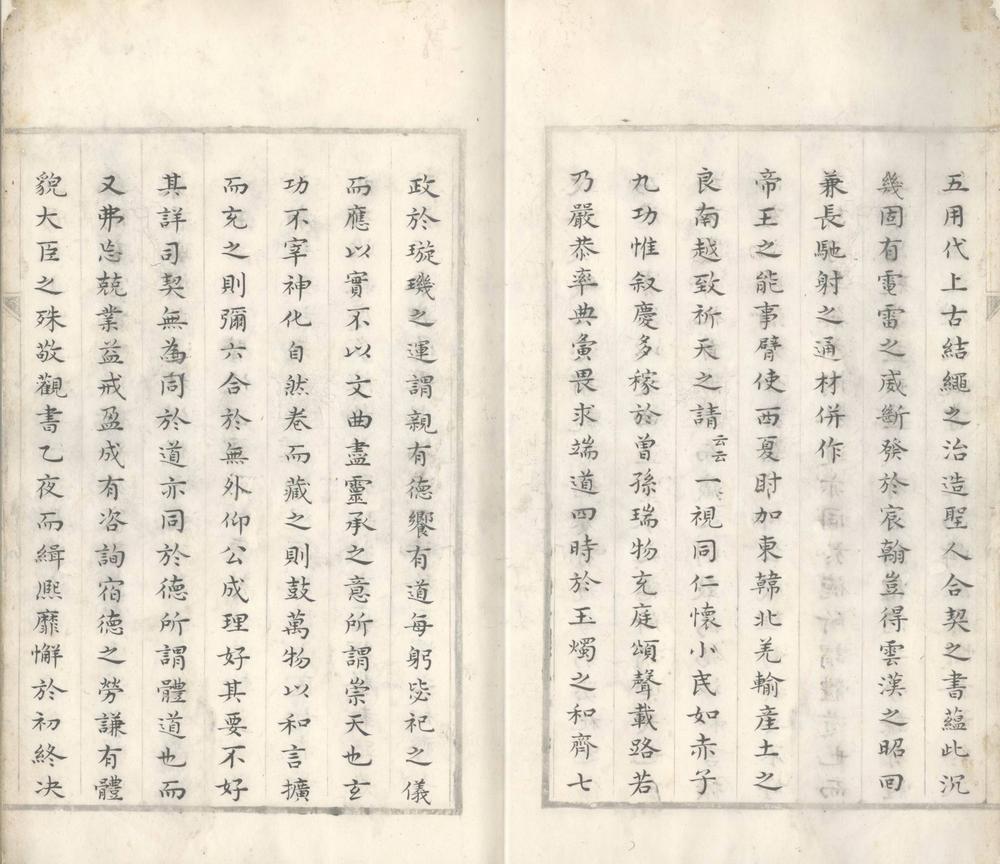 五用代上古結繩之治造聖人合契之書蘊此沉
幾固有電雷之威斷發於宸翰豈得雲漢之昭回
兼長馳射之通材併作
帝王之能事臂使西夏財加東韓北羌輸產土之
良南越致祈天之請云云一視同仁懷小民如赤子
九功惟叙慶多稼於曾孫瑞物充庭頌聲載路若
乃嚴恭率典夤畏求端道四時於玉燭之和齊七
政於璇璣之運謂親有德饗有道每躬毖祀之儀
而應以實不以文曲盡靈承之意所謂崇天也玄
功不宰神化自然卷而藏之則鼓萬物以和言擴
而充之則彌六合於無外仰公成理好其要不好
其詳司契無為同於道亦同於德所謂體道也而
又弗忘兢業益戒盈成有咨詢宿德之勞謙有體
貌大臣之殊敬觀書乙夜而緝熙靡懈於初終决